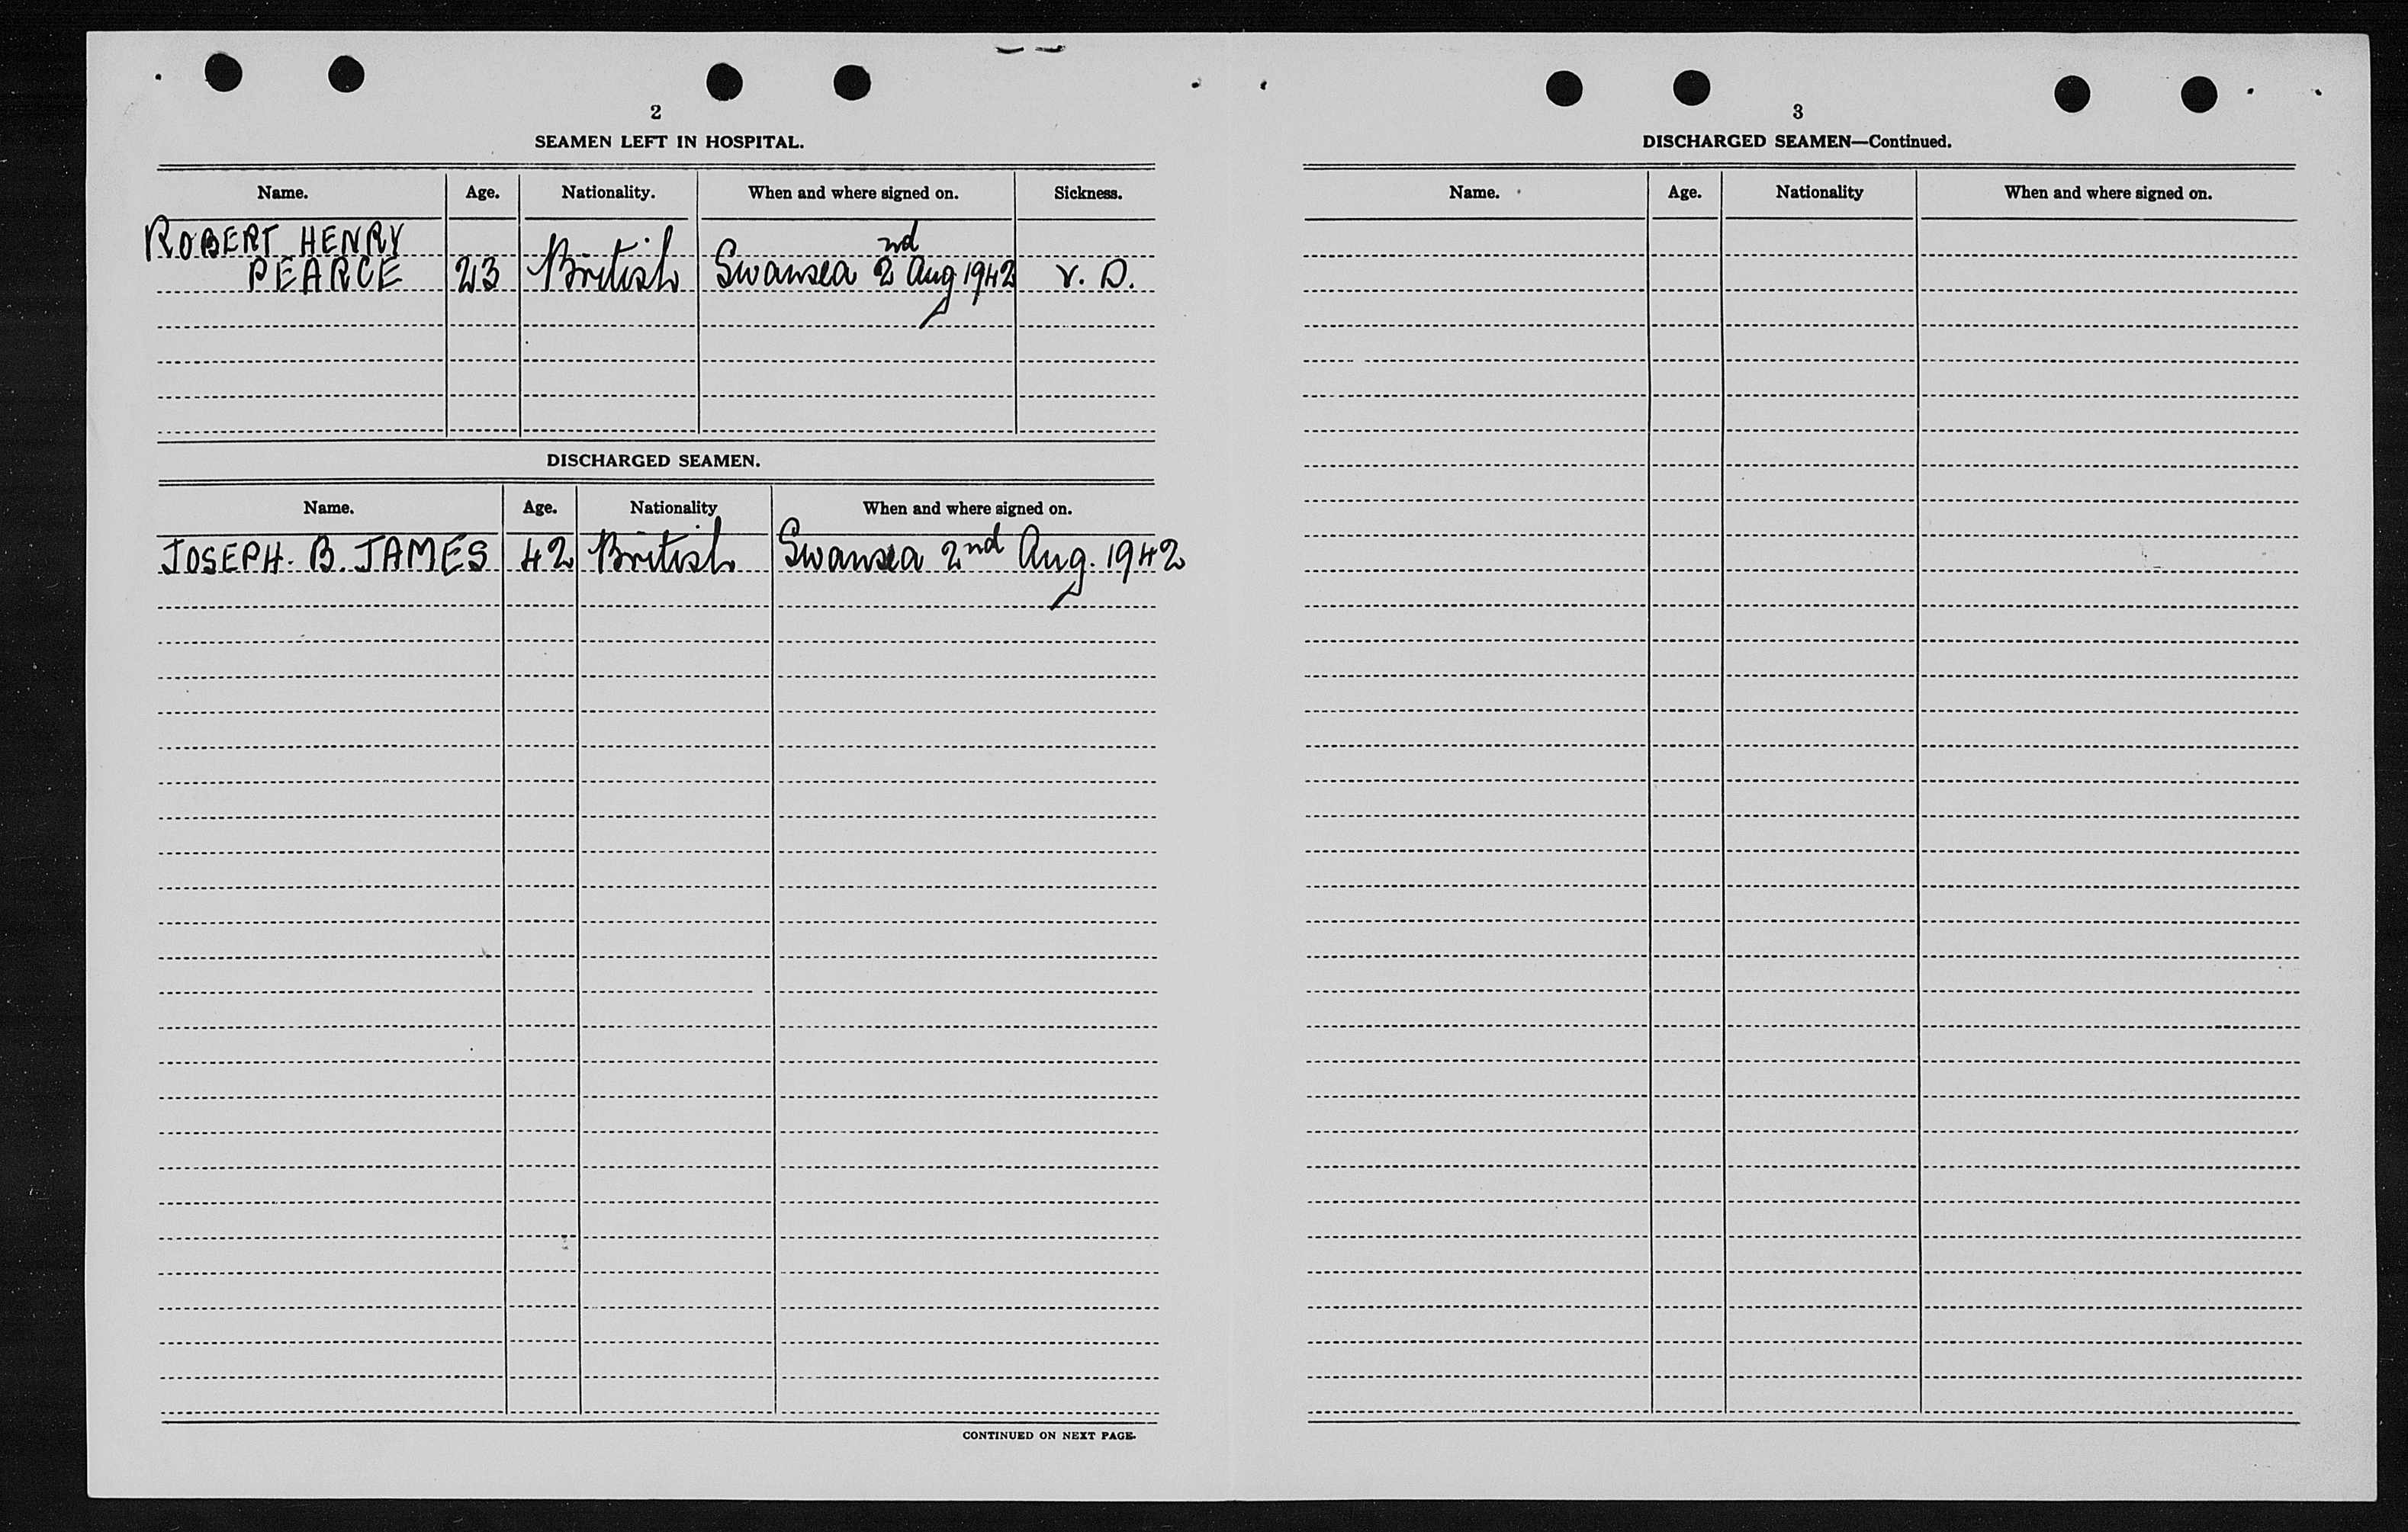 2
SEAMEN LEFT IN HOSPITAL.
Name. Age. Nationality. When and where signed on. Sickness.
ROBERT HENRY
PEARCE 23 British Swansea 2nd Aug 1942 V. D.
DISCHARGED SEAMEN.
Name. Age. Nationality When and where signed on.
JOSEPH. B. JAMES 42 British Swansea 2nd Aug. 1942
CONTINUED ON NEXT PAGE.
3
DISCHARGED SEAMEN—Continued.
Name. Age. Nationality When and where signed on.